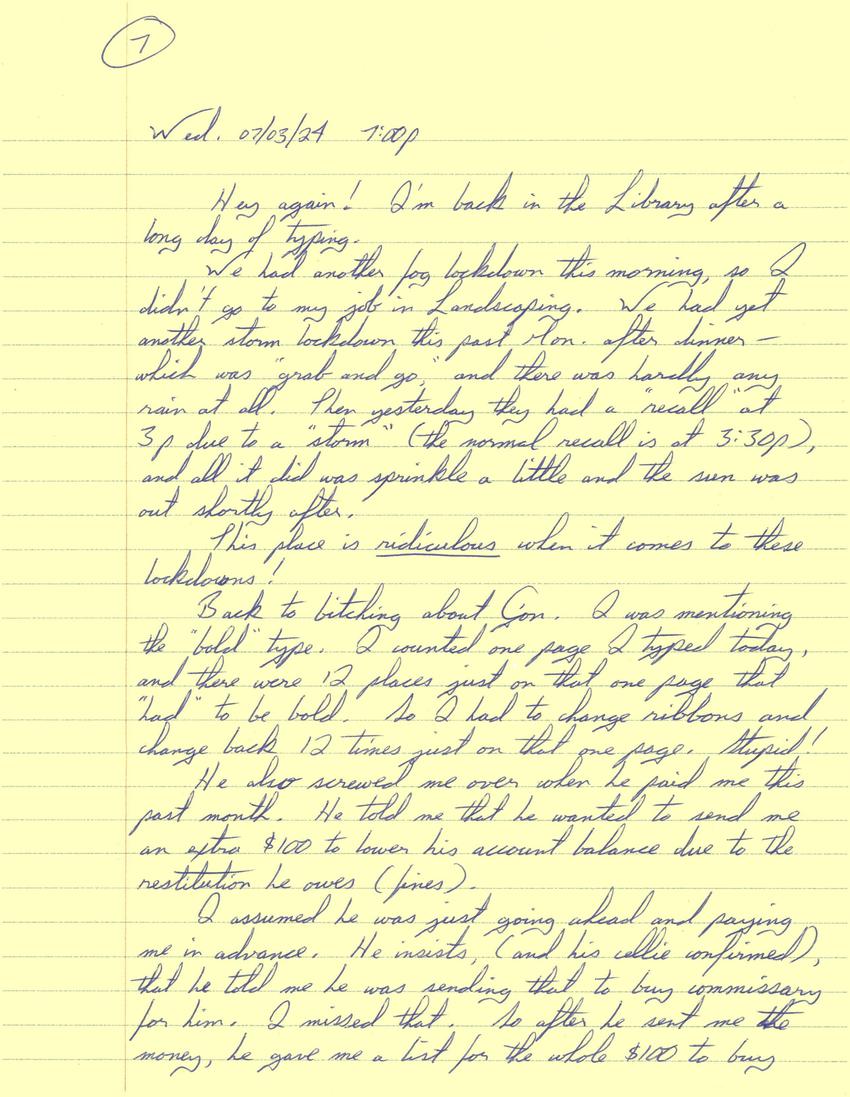 7
Wed. 07/03/24 7:00p
Hey again! I'm back in the Library after a
long day of typing.
We had another fog lockdown this morning, so I
didn't go to my job in Landscaping. We had yet
another storm lockdown this past Mon. after dinner –
which was "grab and go," and there was hardly any
rain at all. Then yesterday they had a "recall" at
3p due to a "storm" (the normal recall is at 3:30p),
and all it did was sprinkle a little and the sun was
out shortly after.
This place is ridiculous when it comes to these
lockdowns!
Back to bitching about Gon. I was mentioning
the "bold" type. I counted one page I typed today,
and there were 12 places just on that one page that
"had" to be bold. So I had to change ribbons and
change back 12 times just on that one page. Stupid!
He also screwed me over when he paid me this
past month. He told me that he wanted to send me
an extra $100 to lower his account balance due to the
restitution he owes (fines).
I assumed he was just going ahead and paying
me in advance. He insists, (and his cellie confirmed),
that he told me he was sending that to buy commissary
for him. I missed that. So after he sent me the
money, he gave me a list for the whole $100 to buy